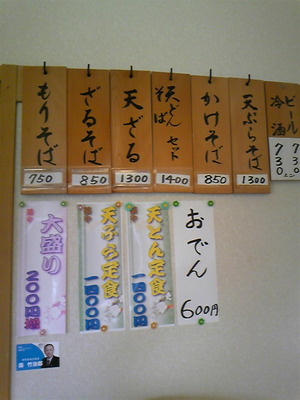 もりそば
750
ざるそば
850
天ざる
1300
天どん
そば
セット
1400
かけそば
850
天ぷらそば
1300
ビール
冷酒
730
730
大盛り
200円増
天ぷら定食
一四〇〇円
天どん定食
一四〇〇円
おでん
600円